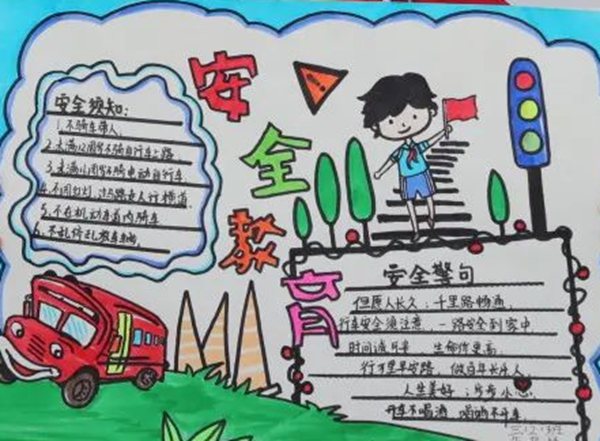 安全教育
安全须知:
1.不骑车带人.
2.未满12周岁不骑自行车上路
3.未满16周岁不骑电动自行车.
4.不闯红灯,过马路走人行横道.
5.不在机动车道内骑车
6.不乱停乱放车辆.
安全警句
但愿人长久;千里路畅通.
行车安全须注意,一路安全到家中
时间诚可贵 生命价更高.
行万里平安路,做百年长乐人.
人生美好;步步小心.
开车不喝酒 喝酒不开车.